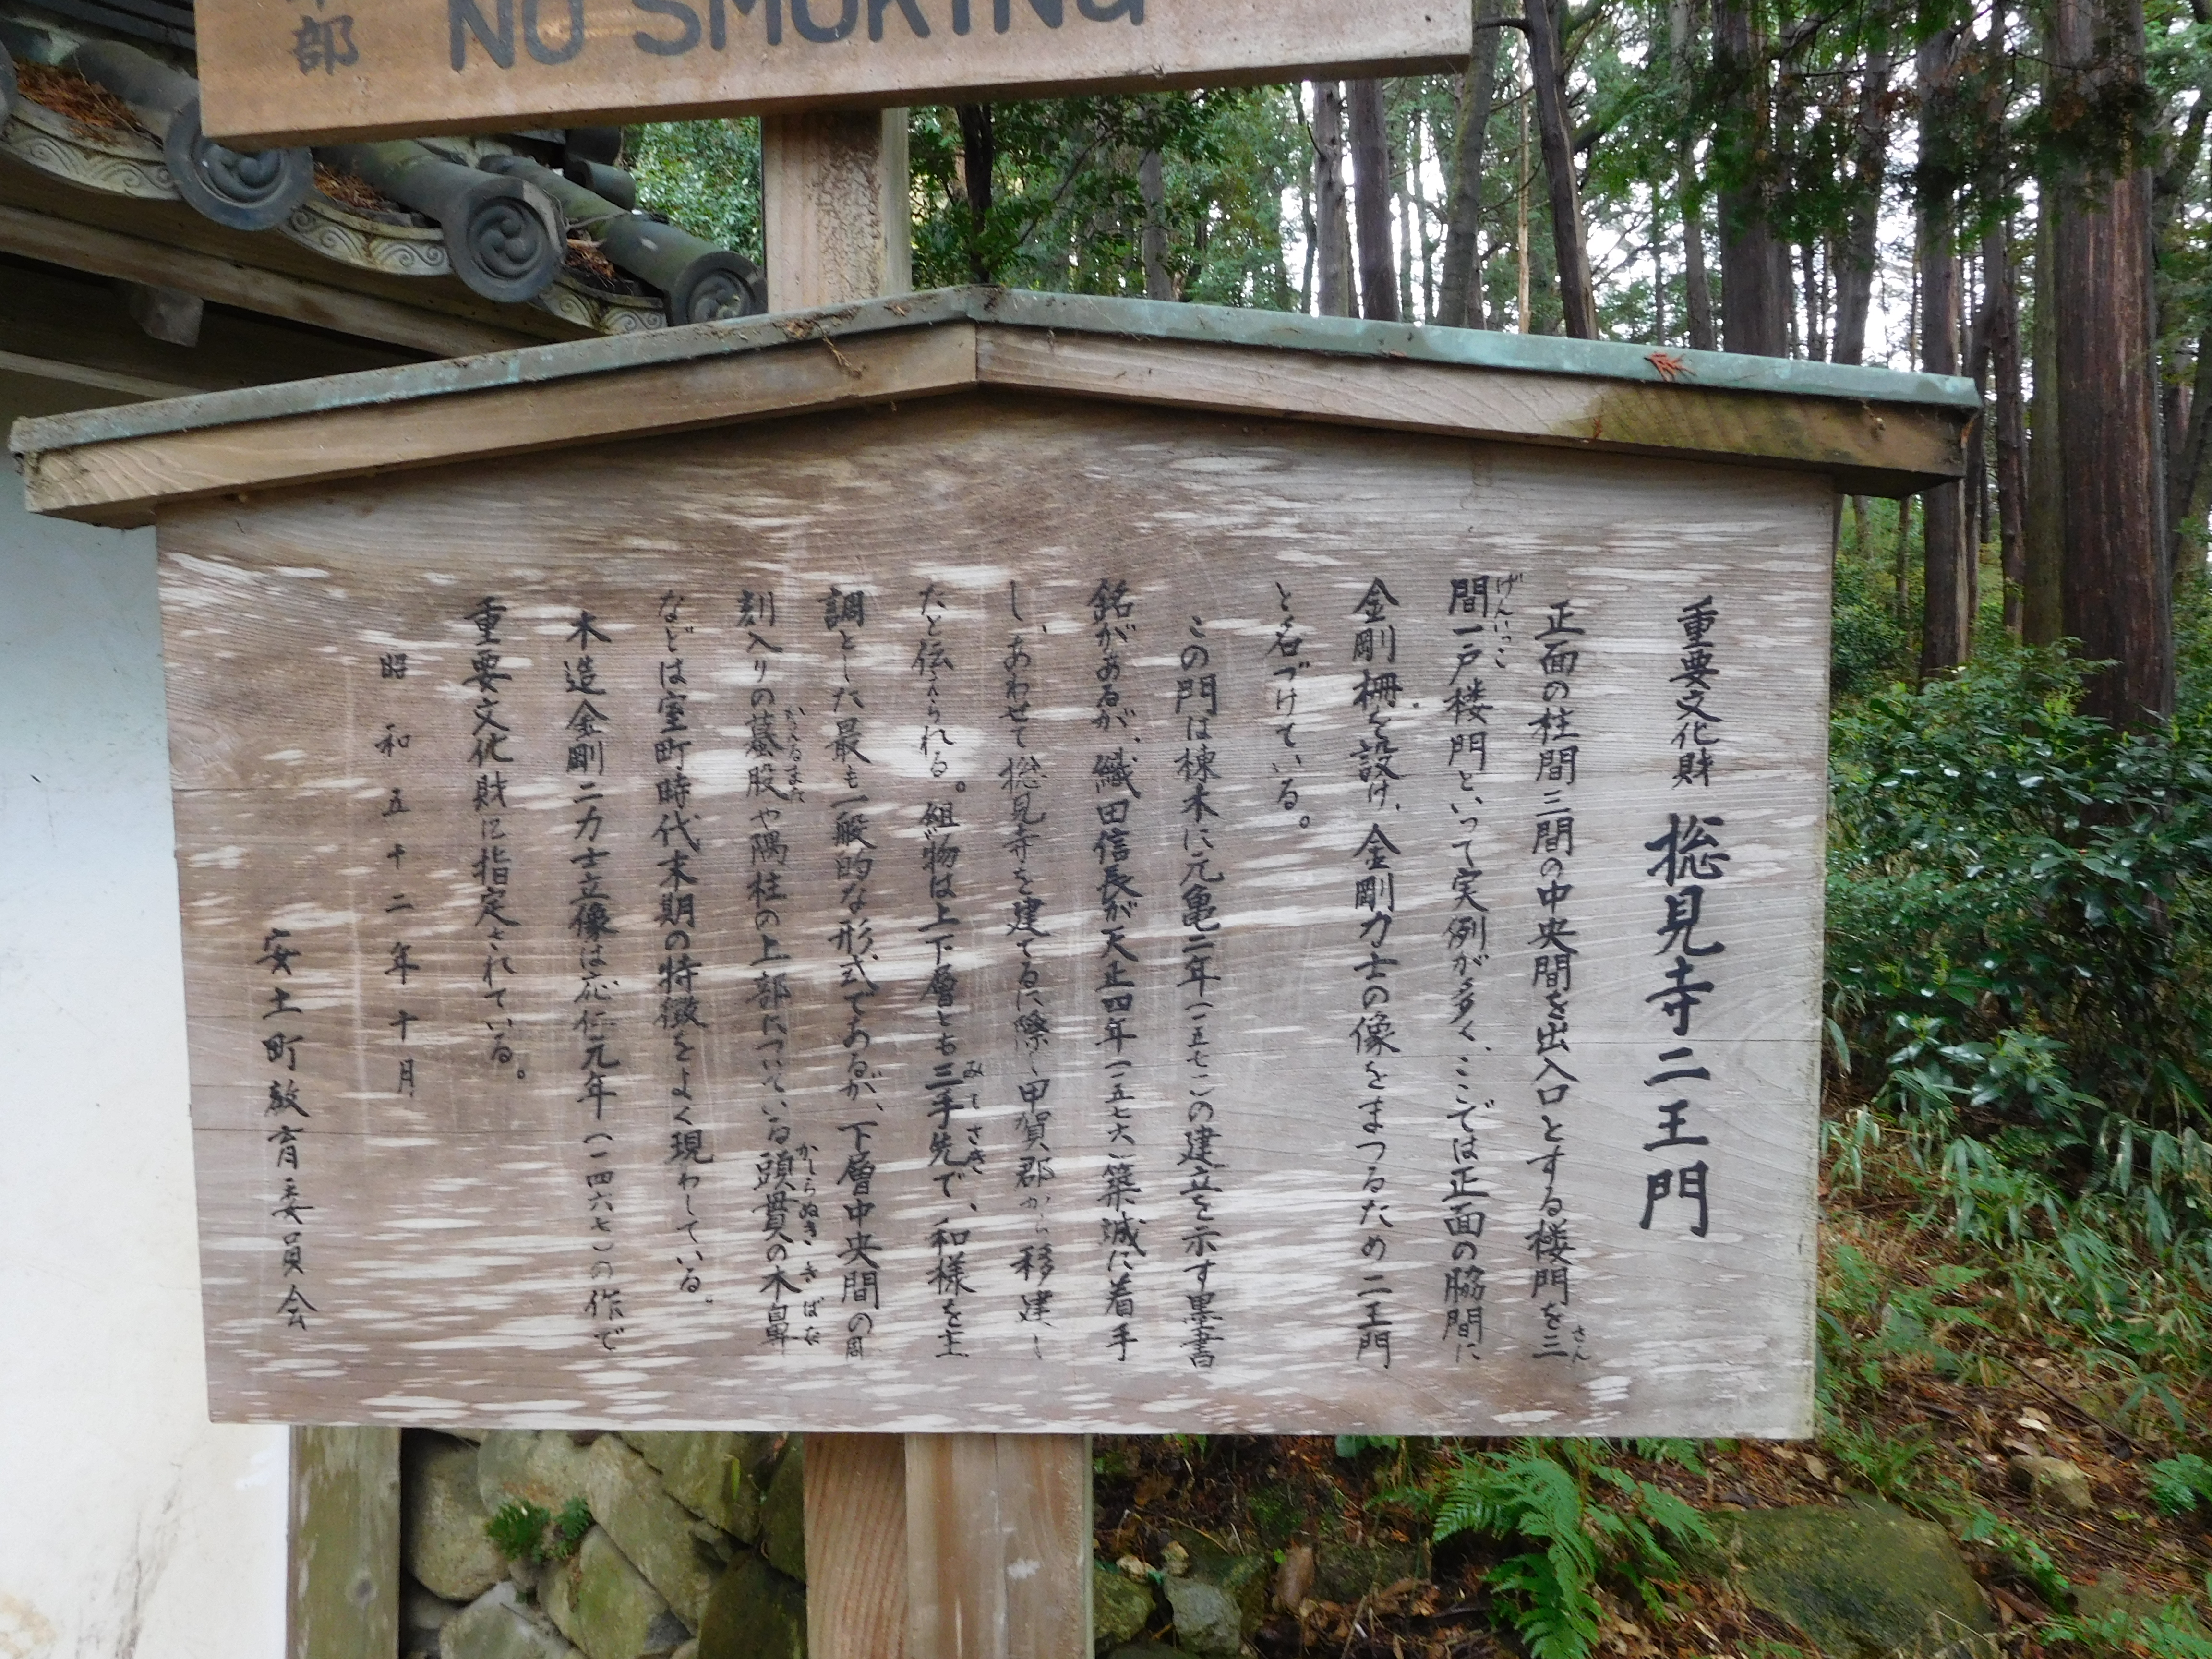 部
NO SMOKING
重要文化財 摠見寺二王門
正面の柱間三間の中央間を出入口とする楼門を三
さん
間一戸楼門といって実例が多く、ここでは正面の脇間に
げんいっこ
金剛柵を設け、金剛力士の像をまつるため二王門
と名づけている。
この門は棟木に元亀二年(一五七一)の建立を示す墨書
銘があるが、織田信長が天正四年(一五七六)築城に着手
し、あわせて摠見寺を建てるに際し甲賀郡から移建し
たと伝えられる。組物は上下層とも三手先で、和様を主
みてさき
調とした最も一般的な形式であるが、下層中央間の
刻入りの蟇股や隅柱の上部についている頭貫の木鼻
かえるまた かしらぬき きばな
などは室町時代末期の特徴をよく現わしている。
木造金剛二力士立像は応仁元年(一四六七)の作で
重要文化財に指定されている。
昭和五十二年十月
安土町教育委員会